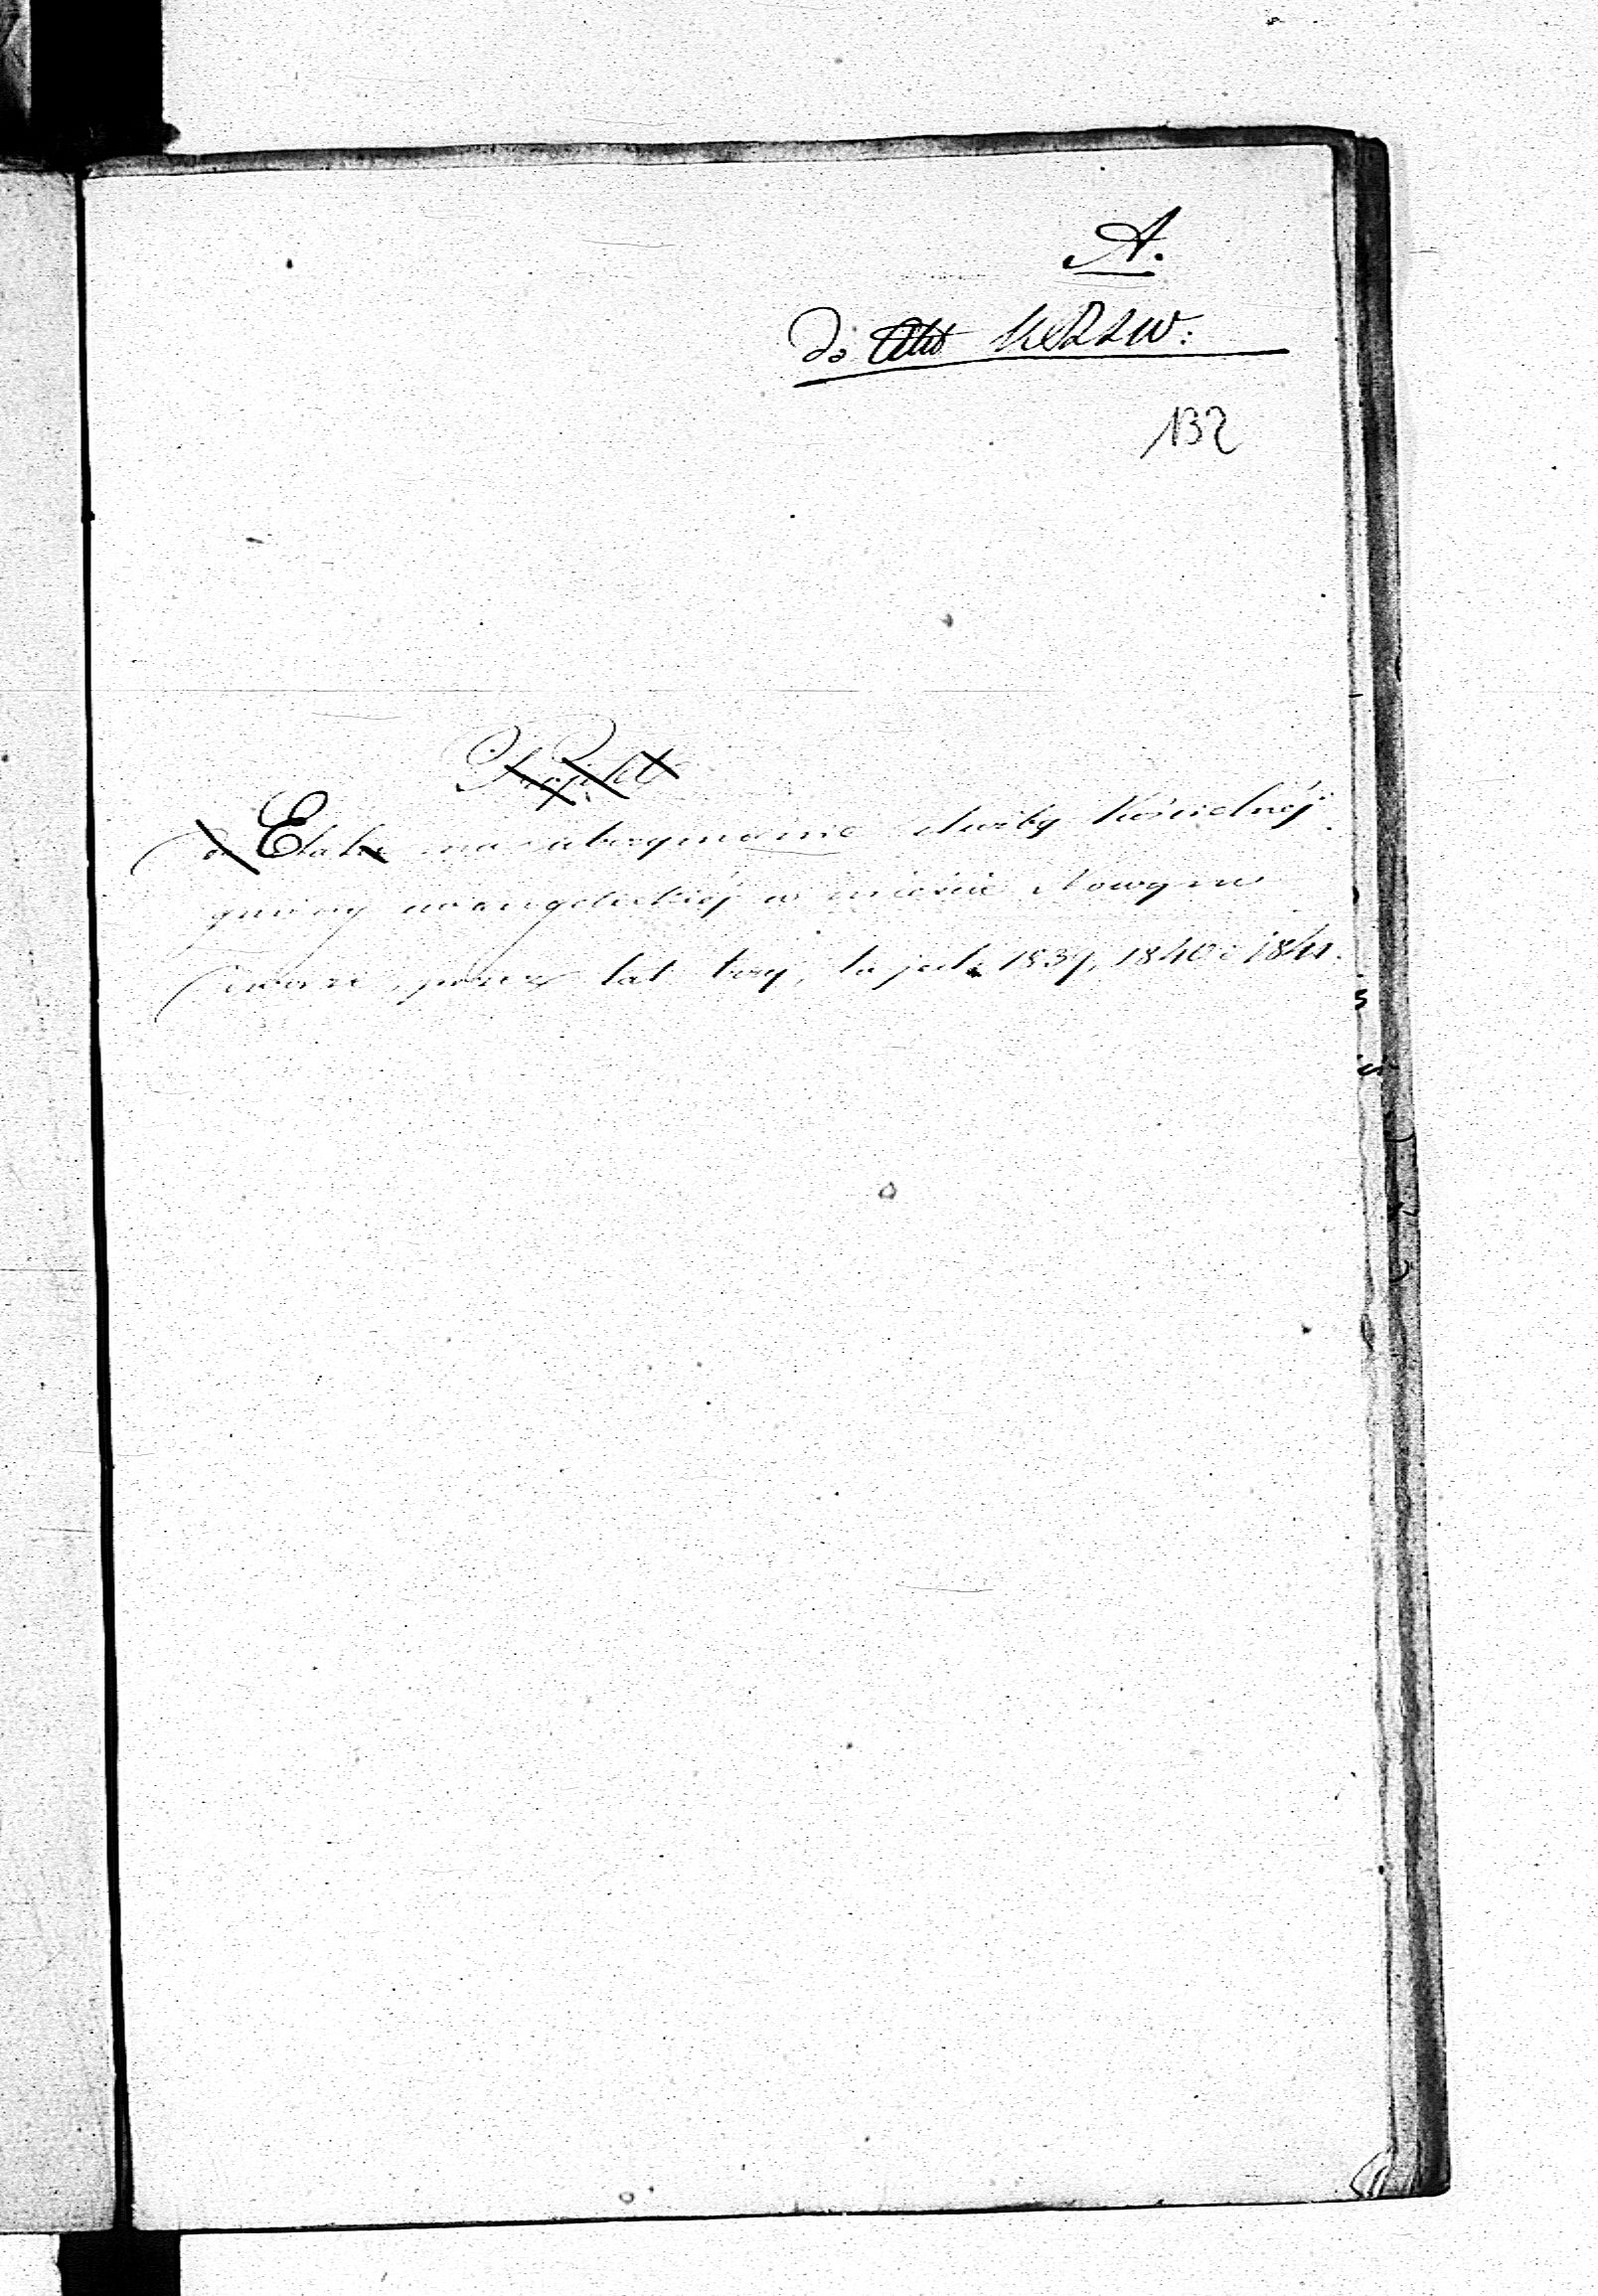 A.
do
132
Projekt
do Etatu na utrzymanie służby Kościelnéj
gminy ewangelickiéj w mieście Nowym
przez lat trzy, to jest: 1839, 1840 i 1841.